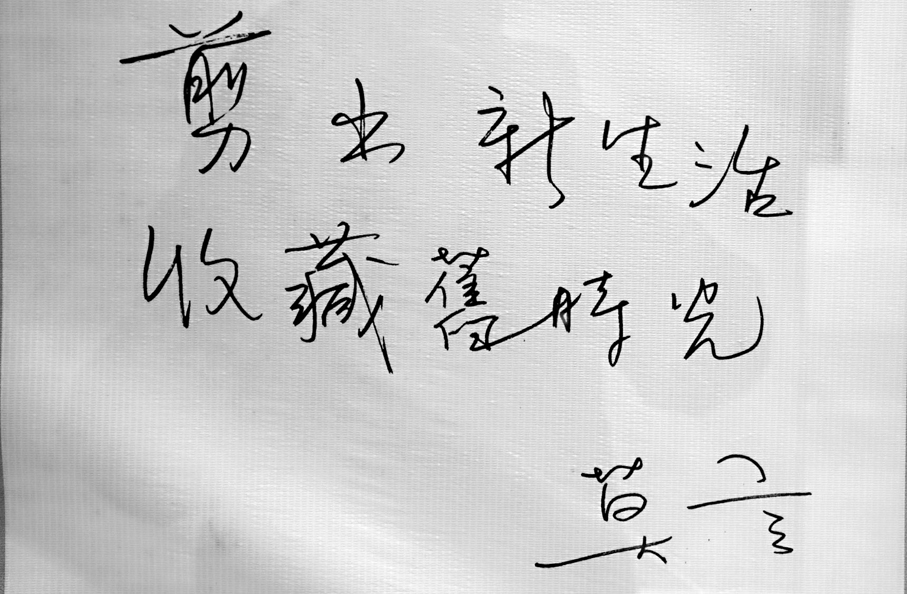 剪出新生活
收藏舊時光
莫言